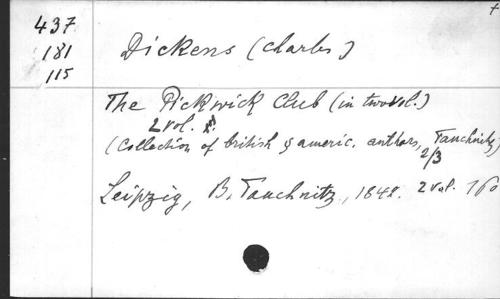 437
181
115
Dickens (Charles)
The Pickwick Club (in two vol.)
2 vol.
(Collection of british & americ. authors, Tauchnitz,
2/3
Leipzig, B. Tauchnitz, 1842. 2 vol. 16°